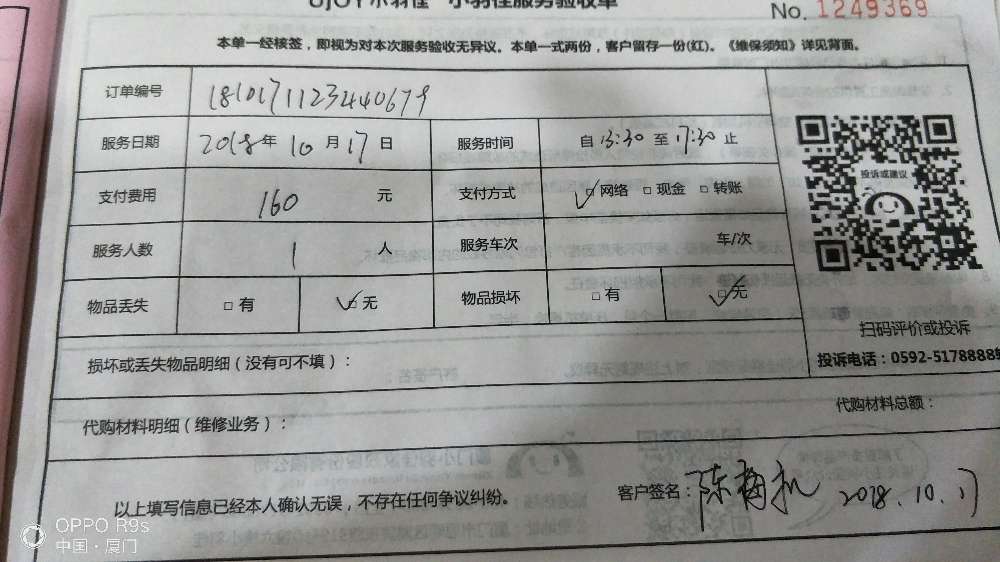 UJOY小羽佳 小羽佳服务验收单
No. 1249369
本单一经核签，即视为对本次服务验收无异议。本单一式两份，客户留存一份(红)。《维保须知》详见背面。
订单编号 1810171123440679
服务日期 2018年10月17日 服务时间 自13:30至17:30止
支付费用 160 元 支付方式 ☑网络 □现金 □转账
服务人数 1 人 服务车次 车/次
物品丢失 □有 ☑无 物品损坏 □有 ☑无
投诉或建议
扫码评价或投诉
投诉电话：0592-5178888转
损坏或丢失物品明细（没有可不填）：
代购材料明细（维修业务）： 代购材料总额：
以上填写信息已经本人确认无误，不存在任何争议纠纷。 客户签名： 陈 2018.10.17
OPPO R9s
中国·厦门